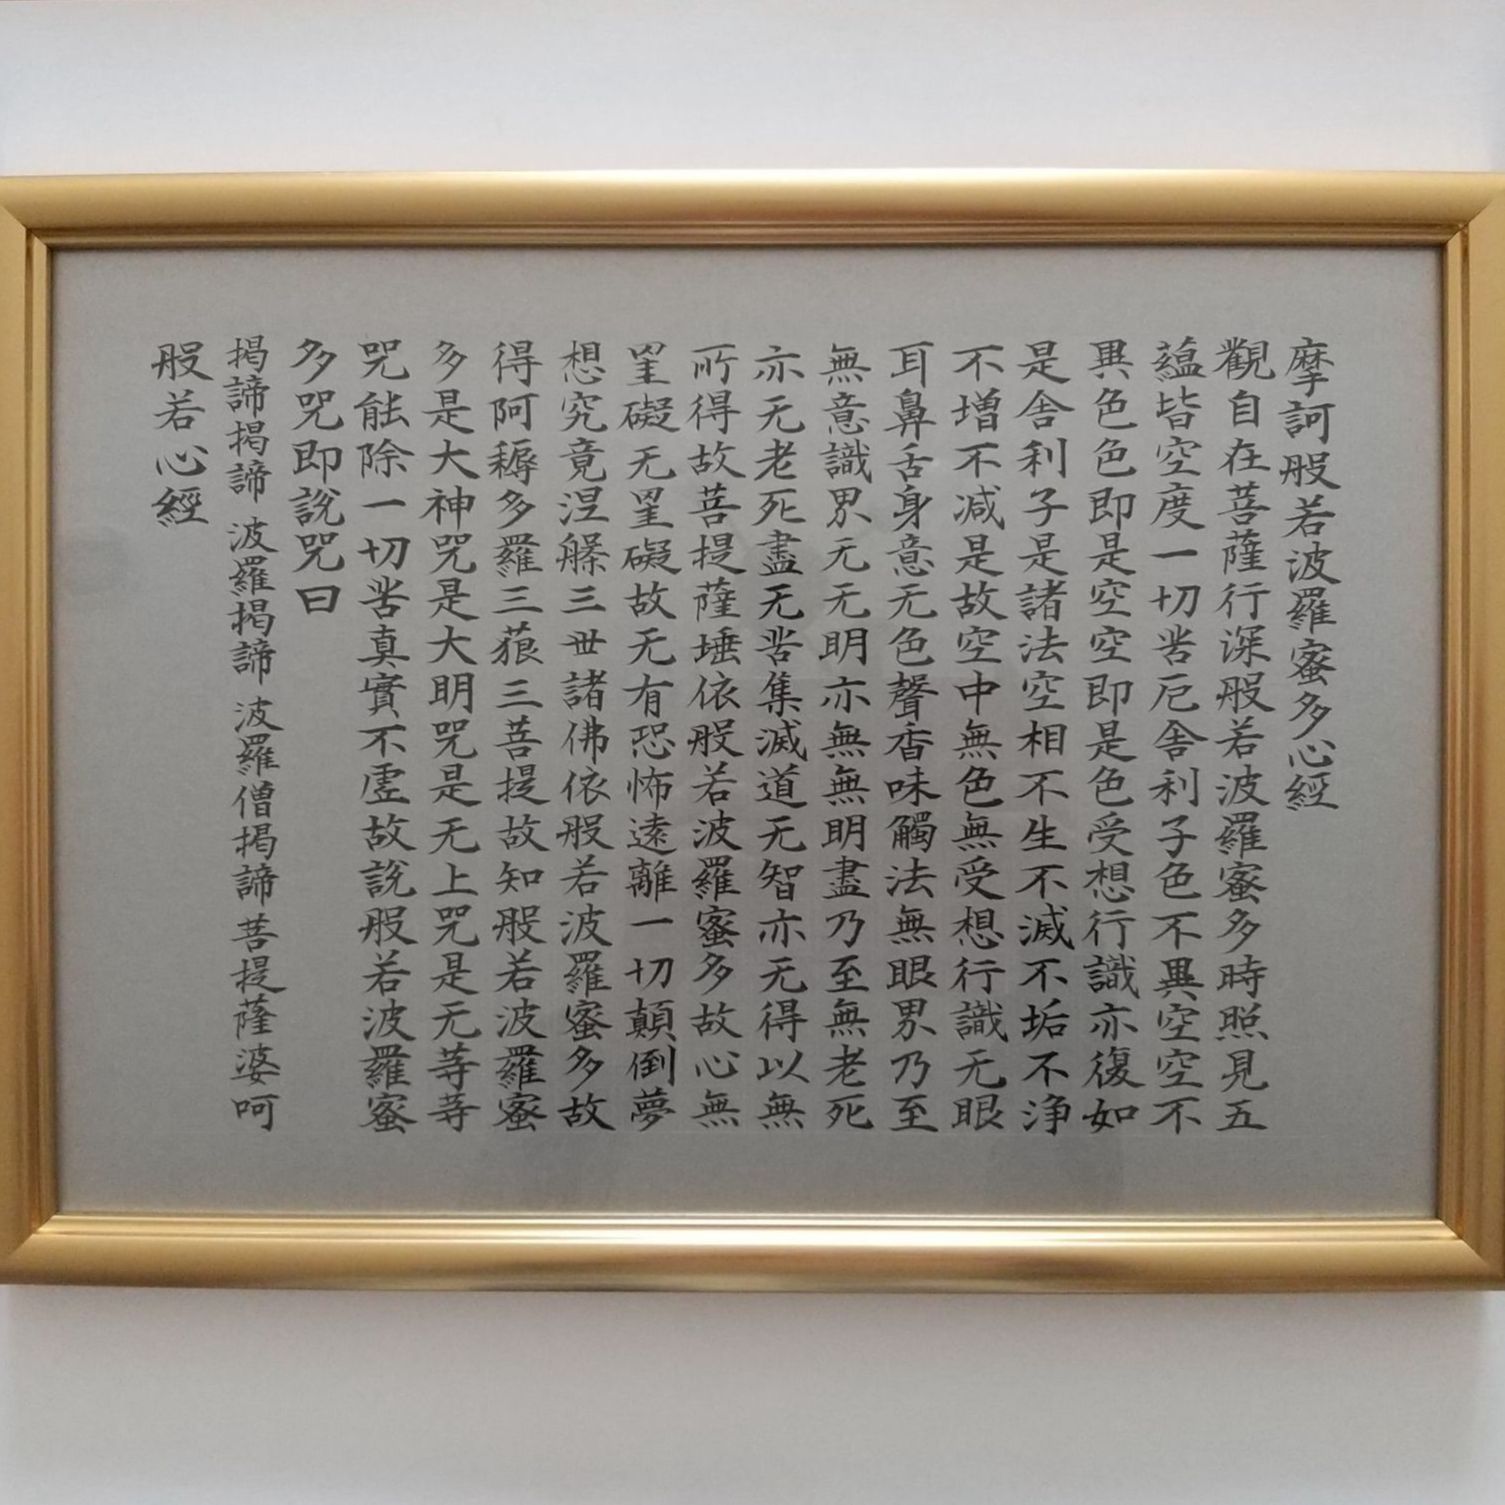 摩訶般若波羅蜜多心經
觀自在菩薩行深般若波羅蜜多時照見五
蘊皆空度一切苦厄舎利子色不異空空不
異色色即是空空即是色受想行識亦復如
是舎利子是諸法空相不生不滅不垢不浄
不増不減是故空中無色無受想行識无眼
耳鼻舌身意无色聲香味觸法無眼界乃至
無意識界无无明亦無無明盡乃至無老死
亦无老死盡无苦集滅道无智亦无得以無
所得故菩提薩埵依般若波羅蜜多故心無
罣礙无罣礙故无有恐怖遠離一切顛倒夢
想究竟涅槃三世諸佛依般若波羅蜜多故
得阿耨多羅三藐三菩提故知般若波羅蜜
多是大神咒是大明咒是无上咒是无等等
咒能除一切苦真實不虛故説般若波羅蜜
多咒即説咒曰
掲諦掲諦 波羅掲諦 波羅僧掲諦 菩提薩婆呵
般若心經